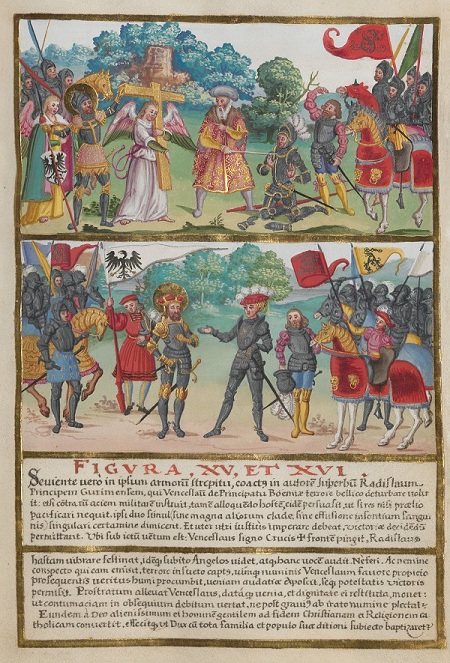 FIGVRA, XV, ET XVI
Seuiente uero in ipsum armorũ strepitu, coacto in autorẽ superbũ Radislaum
Principem Gurimensem, qui Venceslaũ de Principatu Boemiæ terrore bellico deturbare uolu
it: etsi cõtra eũ aciem militarẽ instruit, tamẽ alloquẽdo hostẽ, eidẽ persuasit, ut si res nisi prælio
Pacificari nequit, ipsi duo simul, sine magna aliorum clade, sine effusione insontium sangui
nis, singulari certamine dimicent. Et uter uti iustius imperare debeat, victoriæ decidendũ
permittant. Vbi sub ictũ uentum est: Venceslaus signo Crucis ✝ frontẽ pingit, Radislaus
hastam uibrare festinat, ideoq́ subito Angelos uidet, atq́ hanc vocẽ audit. Ne feri. Ac nemine
conspecto qui eam emisisset, timore insueto captus, uirumq́ numinis Venceslaum fauore propitio
prosequentis ueritus humi procumbit, ueniam audatiæ deposcit, seq́ potestati victoris
permittit. Prostratum alleuat Venceslaus, data q́ uenia, et dignitate ei restituta, monet:
ut contumaciam in obsequium debitum uertat, ne post grauius ab irato numine plectatur.
Eundem à Deo altissimum et hominẽ gentilem ad fidem Christianam et Religionem ca
tholicam conuertit, effecitq́ ut Dux cũ tota familia et populo suæ ditioni subiecto baptizaretur